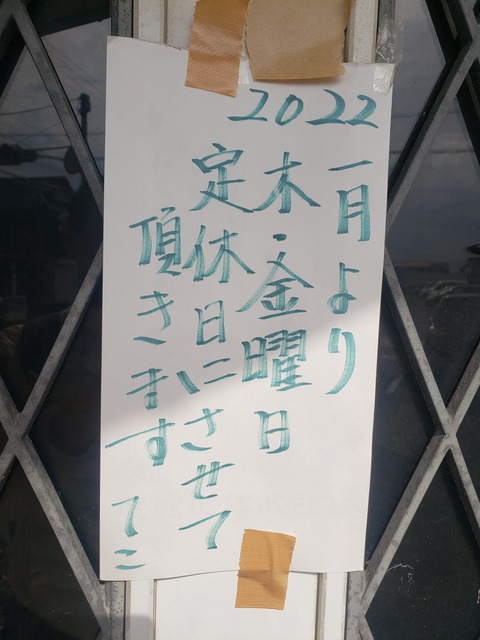 2022
一月より
木・金曜日
定休日にさせて
頂きます
てこ